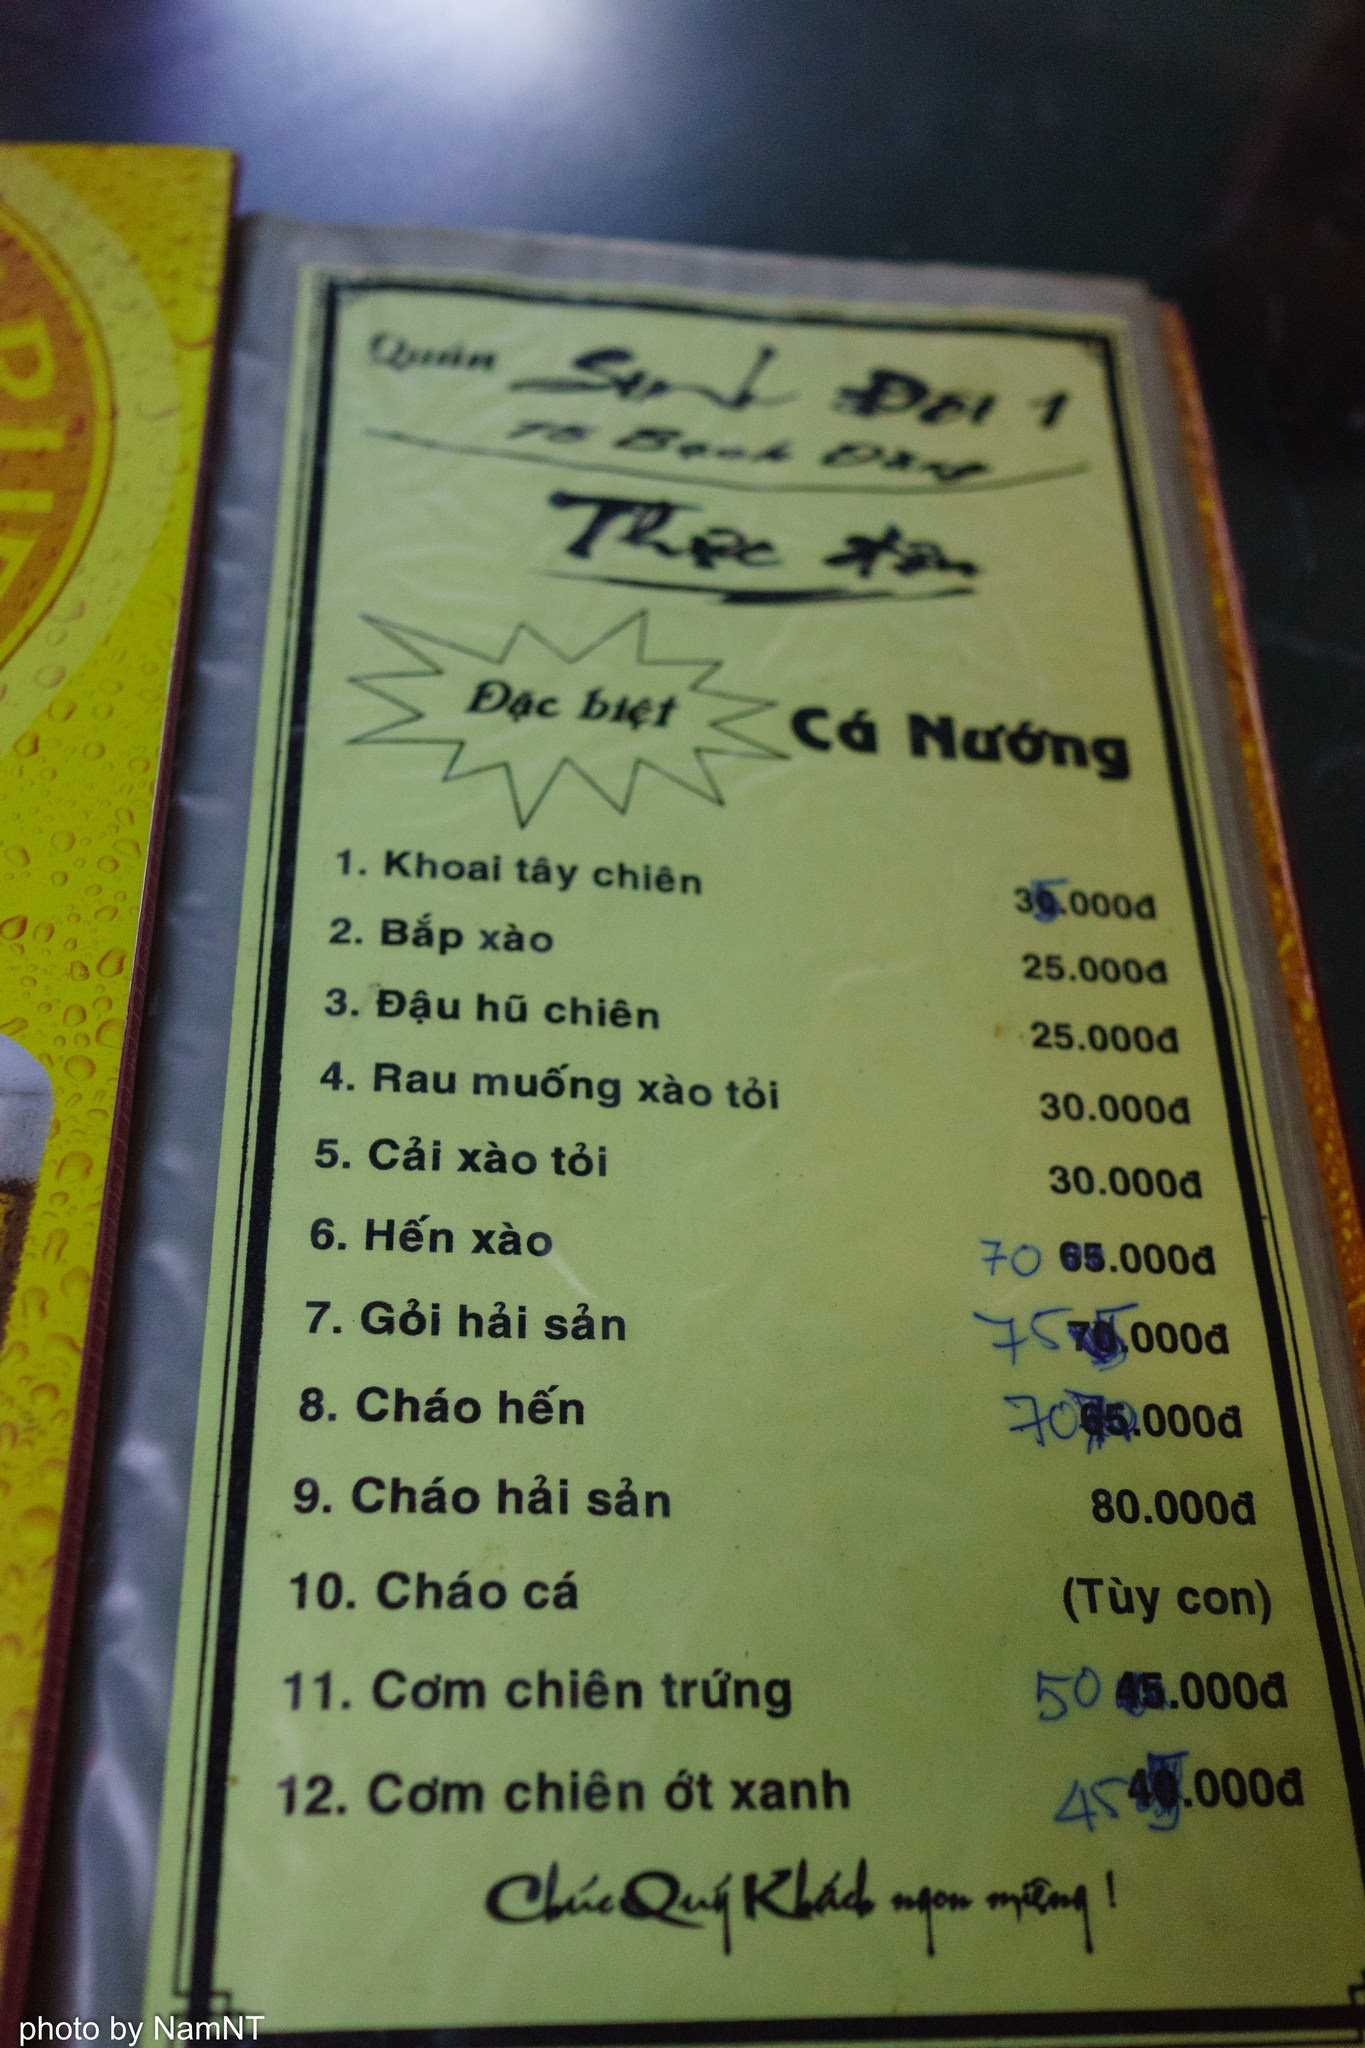 Quán Sinh Đôi 1
75 Bạch Đằng
Thực đơn
Đặc biệt Cá Nướng
1. Khoai tây chiên 35.000đ
2. Bắp xào 25.000đ
3. Đậu hũ chiên 25.000đ
4. Rau muống xào tỏi 30.000đ
5. Cải xào tỏi 30.000đ
6. Hến xào 70 65.000đ
7. Gỏi hải sản 75 70.000đ
8. Cháo hến 70 65.000đ
9. Cháo hải sản 80.000đ
10. Cháo cá (Tùy con)
11. Cơm chiên trứng 50 45.000đ
12. Cơm chiên ớt xanh 45 40.000đ
Chúc Quý Khách ngon miệng !
photo by NamNT